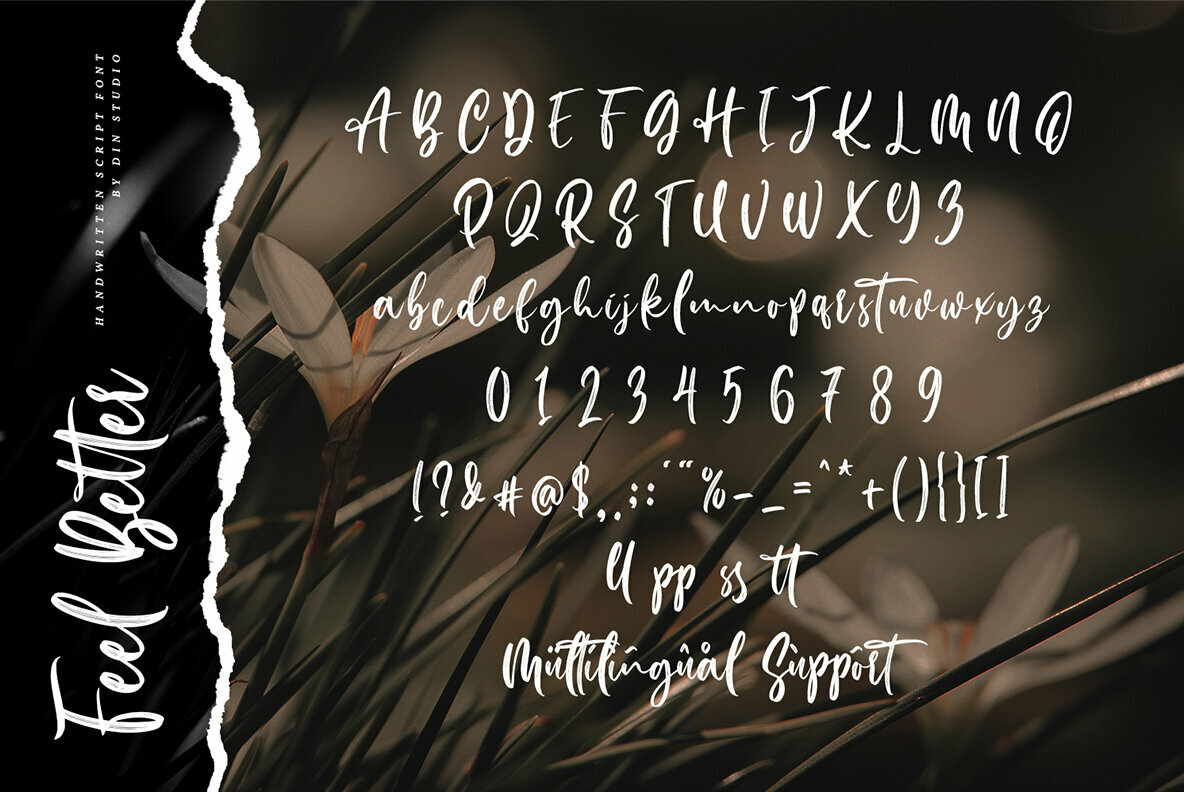 HANDWRITTEN SCRIPT FONT
BY DIN STUDIO
Feel Better
A B C D E F G H I J K L M N O
P Q R S T U V W X Y Z
a b c d e f g h i j k l m n o p q r s t u v w x y z
0 1 2 3 4 5 6 7 8 9
! ? & # @ $ , . ; : ´ ¨ " % - _ = ^ * + ( ) { } [ ]
ll pp ss tt
Mültïlîngûål Sùppôrt